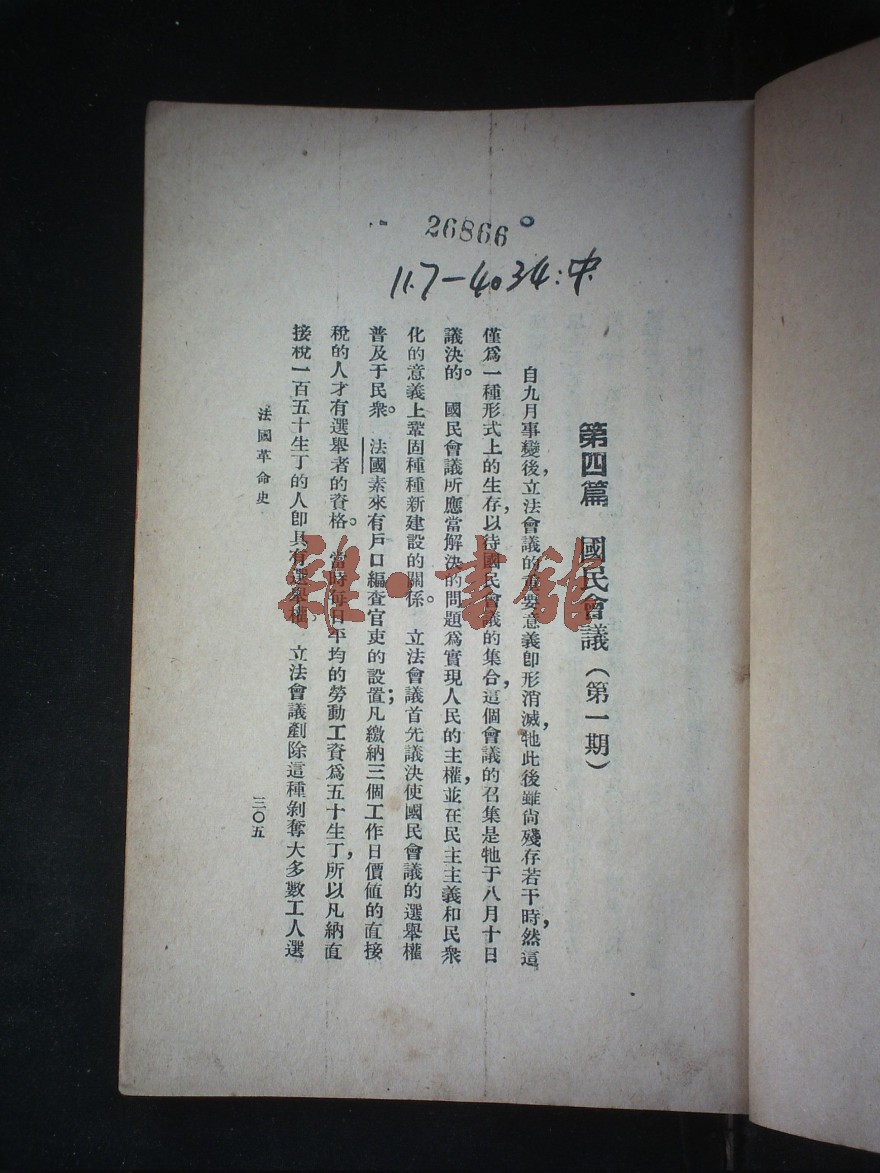 26866
11.7-4034:中
第四篇 國民會議(第一期)
自九月事變後,立法會議的重要意義卽形消滅,牠此後雖尙殘存若干時,然這
僅爲一種形式上的生存,以待國民會議的集合,這個會議的召集是牠于八月十日
議決的。國民會議所應當解決的問題爲實現人民的主權,並在民主主義和民衆
化的意義上鞏固種種新建設的關係。立法會議首先議決使國民會議的選舉權
普及于民衆。法國素來有戶口編查官吏的設置;凡繳納三個工作日價値的直接
稅的人才有選舉者的資格。當時每日平均的勞動工資爲五十生丁,所以凡納直
接稅一百五十生丁的人卽具有選舉權。立法會議剷除這種剝奪大多數工人選
法國革命史
三〇五
雜·書館